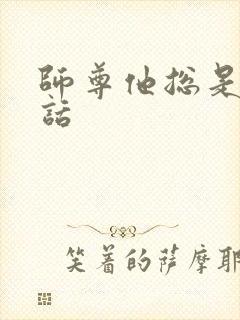 師尊他総是
話
笑着的薩摩耶